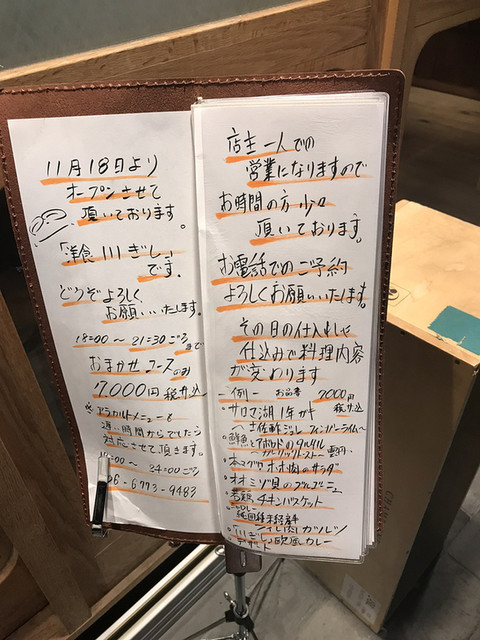 11月18日より
オープンさせて
頂いております。
「洋食川ざし」
です。
どうぞよろしく
お願いいたします。
18:00〜21:30ごろまで
おまかせコースのみ
7,000円税込
※アラカルトメニューも
遅い時間からでしたら
対応させて頂きます。
:00〜24:00ごろ
06-6773-9483
店主一人での
営業になりますので
お時間の方少々
頂いております。
お電話でのご予約
よろしくお願いいたします。
その日の仕入れ、
仕込みで料理内容
が変わります
-例- お品書 7000円
税込
・サロマ湖1年カキ
〜土佐酢ジュレ フィンガーライム〜
・鮮魚とアボカドのタルタル
〜ガーリックトースト
・本マグロホホ肉のサラダ
・オオミゾ貝のブルゴーニュ
・若鶏チキンバスケット
欧風カレー
デザート